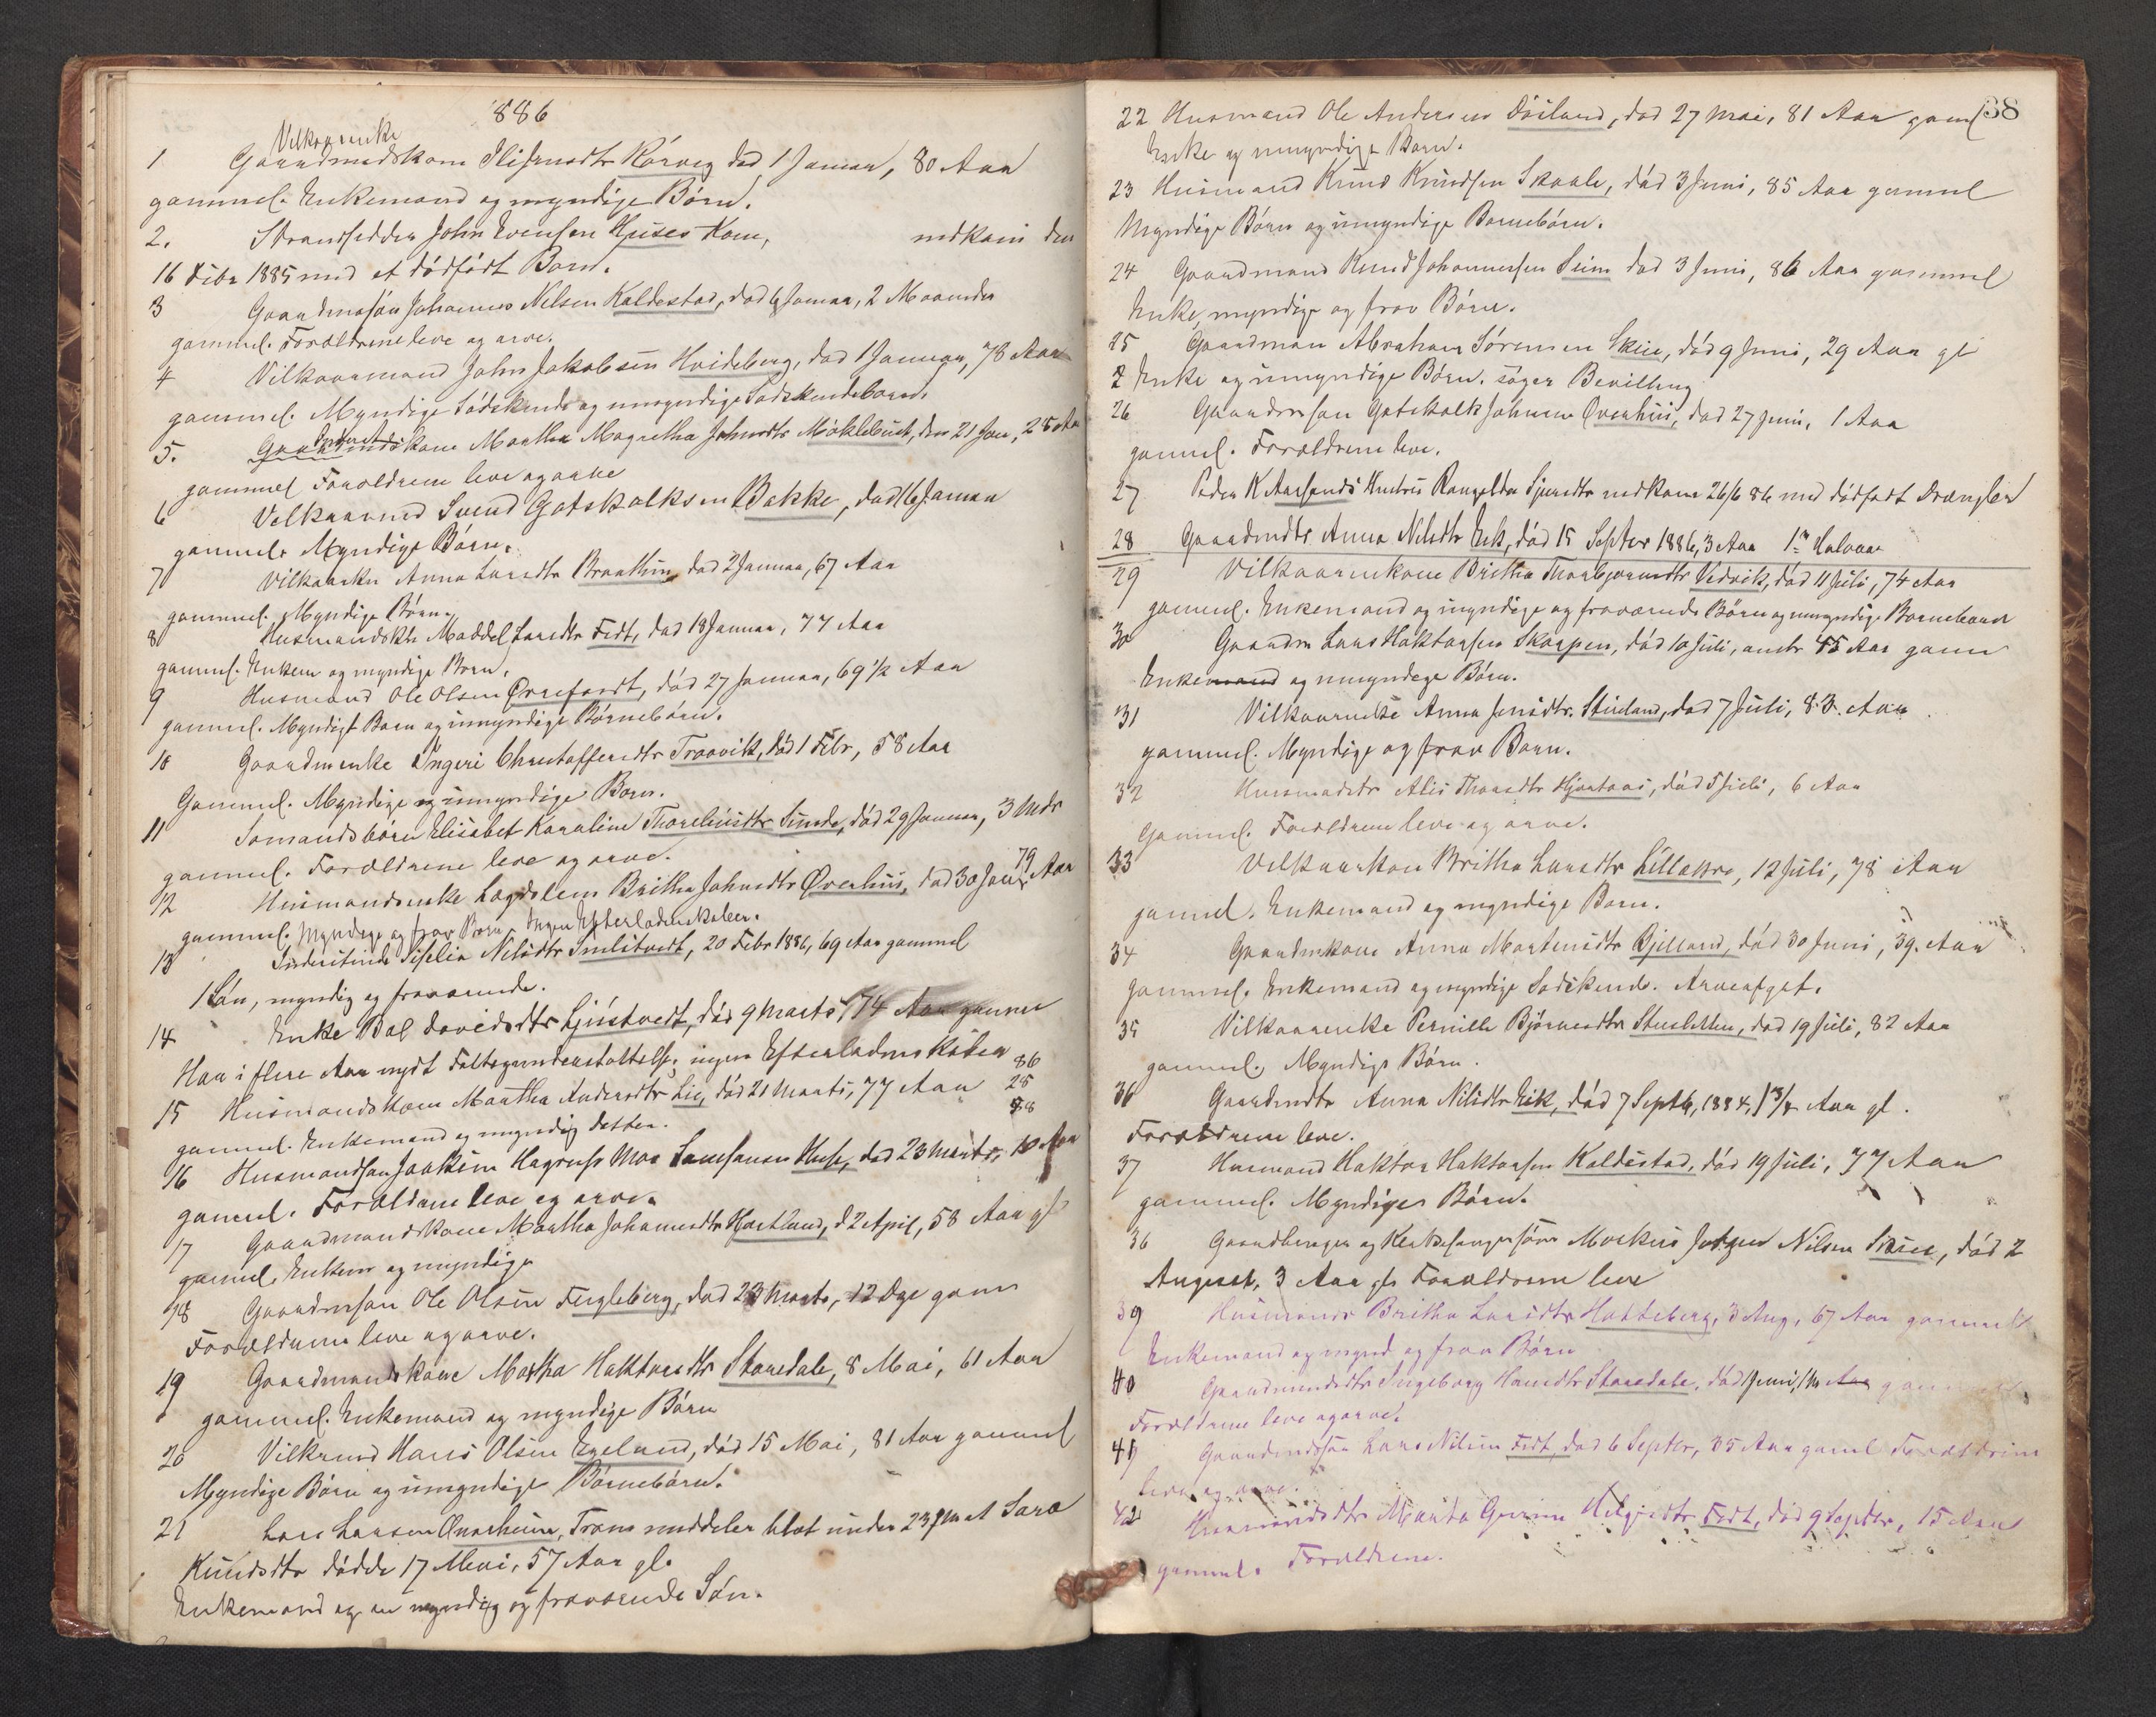 1886
Vilkaarenke
1 Gaardmandskone Korveg død 1 Januar, 80 Aar
gammel. Enkemand og myndige Børn.
2. Strandsidder John Evensen Huses Kone, nedkom den
16 Febr 1885 med et dødfødt Barn.
3 Gaardmasøn Johannes Nilsen Kaldestad, død Januar, 2 Maaneder
gammel. Forældrene leve og arve.
4 Vilkaarmand John Jakobsen Hvideberg, død 1 Januar, 78 Aar
gammel. Myndige Sødskende og umyndige Sødskendebørn.
5. Martha Magretha Johnsdtr Møklebust, den 21 Jan, 25 Aar
gammel Forældrene leve og arve
6 Vilkaarmd Svend Gotskalksen Bakke, død 16 Januar
gammel. Myndige Børn.
7 Vilkaarkr Anna Larsdtr Braathun, død 2 Januar, 67 Aar
gammel. Myndige Børn.
8 Husmandskr Maddel Larsdtr Fedt, død 18 Januar, 77 Aar
gammel. Enkem og myndige Børn.
9 Husmand Ole Olsen Ørrefordt, død 27 Januar, 69 1/2 Aar
gammel. Myndige Børn og umyndige Børnebørn.
10 Gaardmenke Ingeri Christoffersdtr Traavik, død 1 Febr, 58 Aar
Gammel. Myndige og umyndige Børn.
11 Sømandsbarn Elisabet Karoline Thoreliusdtr Sunde, død 29 Januar, 3 Mdr
gammel. Forældrene leve og arve.
12 Husmandsenke Lægdslem Britha Johnsdtr Øvrehus, død 30 Janr 79 Aar
gammel. Myndige og frav Børn Ingen Efterladenskaber.
13 Inderstinde Siselia Nilsdtr Smlitvedt, 20 Febr 1886, 69 Aar gammel
1 Søn, myndig og fraværende.
14 Enke Bol Davidsdtr Ljústvedt, død 9 Marts, 74 Aar gammel
Har i flere Aar nydt Fattigunderstøttelse, ingen Efterladenskaber
86
15 Husmandskone Martha Andersdtr Lie, død 21 Marts, 77 Aar 28
gammel. Enkemand og myndig Datter. 98
16 Husmandsøn Joakim Magnus Moe Samsonsen Huse, død 23 Marts, 10 Aar
gammel. Forældrene leve og arve.
17 Gaardmandskone Martha Johannesdtr Hjortland, d 2 April, 58 Aar gl
gammel. Enkem og myndige
18 Gaardmsøn Ole Olsen Fugleberg, død 23 Marts, 12 Dge gam
Forældrene leve og arve.
19 Gaardmandskone Martha Haktorsdtr Staredale, 8 Mai, 61 Aar
gammel. Enkemand og myndige Børn
20 Vilkrmd Hans Olsen Egeland, død 15 Mai, 81 Aar gammel
Myndige Børn og umyndige Børnebørn.
21 Lars Larsen Onarheim, Søren meddeler blot under 23 at Sara
Knudsdtr døde 17 Mai, 57 Aar gl.
Enkemand og en myndig og fraværende Søn.
38
22 Husmand Ole Andersen Døsland, død 27 Mai, 81 Aar gaml
Enke og umyndige Børn.
23 Husmand Knud Knudsen Skaale, død 3 Juni, 85 Aar gammel
Myndige Børn og umyndige Børnebørn.
24 Gaardmand Knud Johannessen Seim død 3 Juni, 86 Aar gammel
Enke, myndige og frav Børn.
25 Gaardman Abraham Sørensen Skeie, død 9 Juni, 29 Aar gl
2 Enke og umyndige Børn. søger Bevilling
26 Gaardmsøn Gotskalk Johnsen Øvrehus, død 27 Juni, 1 Aar
gammel. Forældrene leve.
27 Peder K Aarsands Hustru Rangelda Sjursdtr nedkom 26/6 86 med dødfødt Drengebarn
28 Gaardmdtr Anna Nilsdtr Eik, død 15 Septbr 1886, 3 Aar 1ste Halvaar
29 Vilkaarmkone Britha Thorbjørnsdtr Vedvik, død 11 Juli, 74 Aar
gammel. Enkemand og myndige og fraværende Børn og umyndige Børnebørn
30 Gaardm Lars Haktorsen Skarpen, død 10 Juli, omtr 45 Aar gam
Enkemand og umyndige Børn.
31 Vilkaarenke Anna Jensdtr. Stueland, død 7 Juli, 83 Aar
gammel. Myndige og frav Børn.
32 Husmdsdtr Alis Thorsdtr Hjortaas, død 5 Juli, 6 Aar
Gammel. Forældrene leve og arve.
33 Vilkaarkon Britha Larsdtr Lillakre, 12 Juli, 78 Aar
gammel. Enkemand og myndige Børn.
34 Gaardmkone Anna Mortensdtr Bjelland, død 30 Juni, 39 Aar
gammel. Enkemand og myndige Sødskende. Arveafgift.
35 Vilkaarenke Pernille Bjørnsdtr Stusletten, død 19 Juli, 82 Aar
gammel. Myndige Børn.
36 Gaardmdtr Anna Nilsdtr Eik, død 7 Septb, 1884, 1 3/4 Aar gl.
Forældrene leve.
37 Husmand Haktor Haktorsen Kaldestad, død 19 Juli, 77 Aar
gammel. Myndiges Børn.
36 Gaardbruger og Kirkesangersøn Markus Nilsen død 2
August, 3 Aar gl. Forældrene leve
39 Husmands Britha Larsdtr Hatteberg, 3 Aug, 67 Aar gammel
Enkemand og mynd og frav Børn
40 Gaardmandsdtr Ingeborg Hansdtr Staredale, død Juni, 1 M Aar gammel
Forældrene leve og arve.
41 Gaardmdsøn Lars Nilsen Fedt, død 6 Septbr, 35 Aar gaml Forældrene
leve og arve.
42 Husmandsdtr Marta Gurine Helgesdtr Fedt, død 9 Septbr, 15 Aar
gammel. Forældrene.